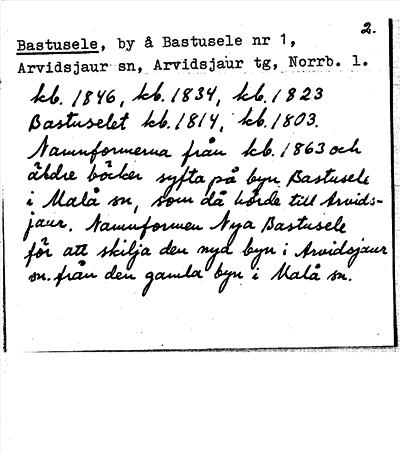 2.
Bastusele, by å Bastusele nr 1,
Arvidsjaur sn, Arvidsjaur tg, Norrb. l.
kb. 1846, kb. 1834, kb. 1823
Bastuselet kb. 1814, kb. 1803.
Namnformerna från kb. 1863 och
äldre böcker syfta på byn Bastusele
i Malå sn, som då hörde till Arvids-
jaur. Namnformen Nya Bastusele
för att skilja den nya byn i Arvidsjaur
sn. från den gamla byn i Malå sn.